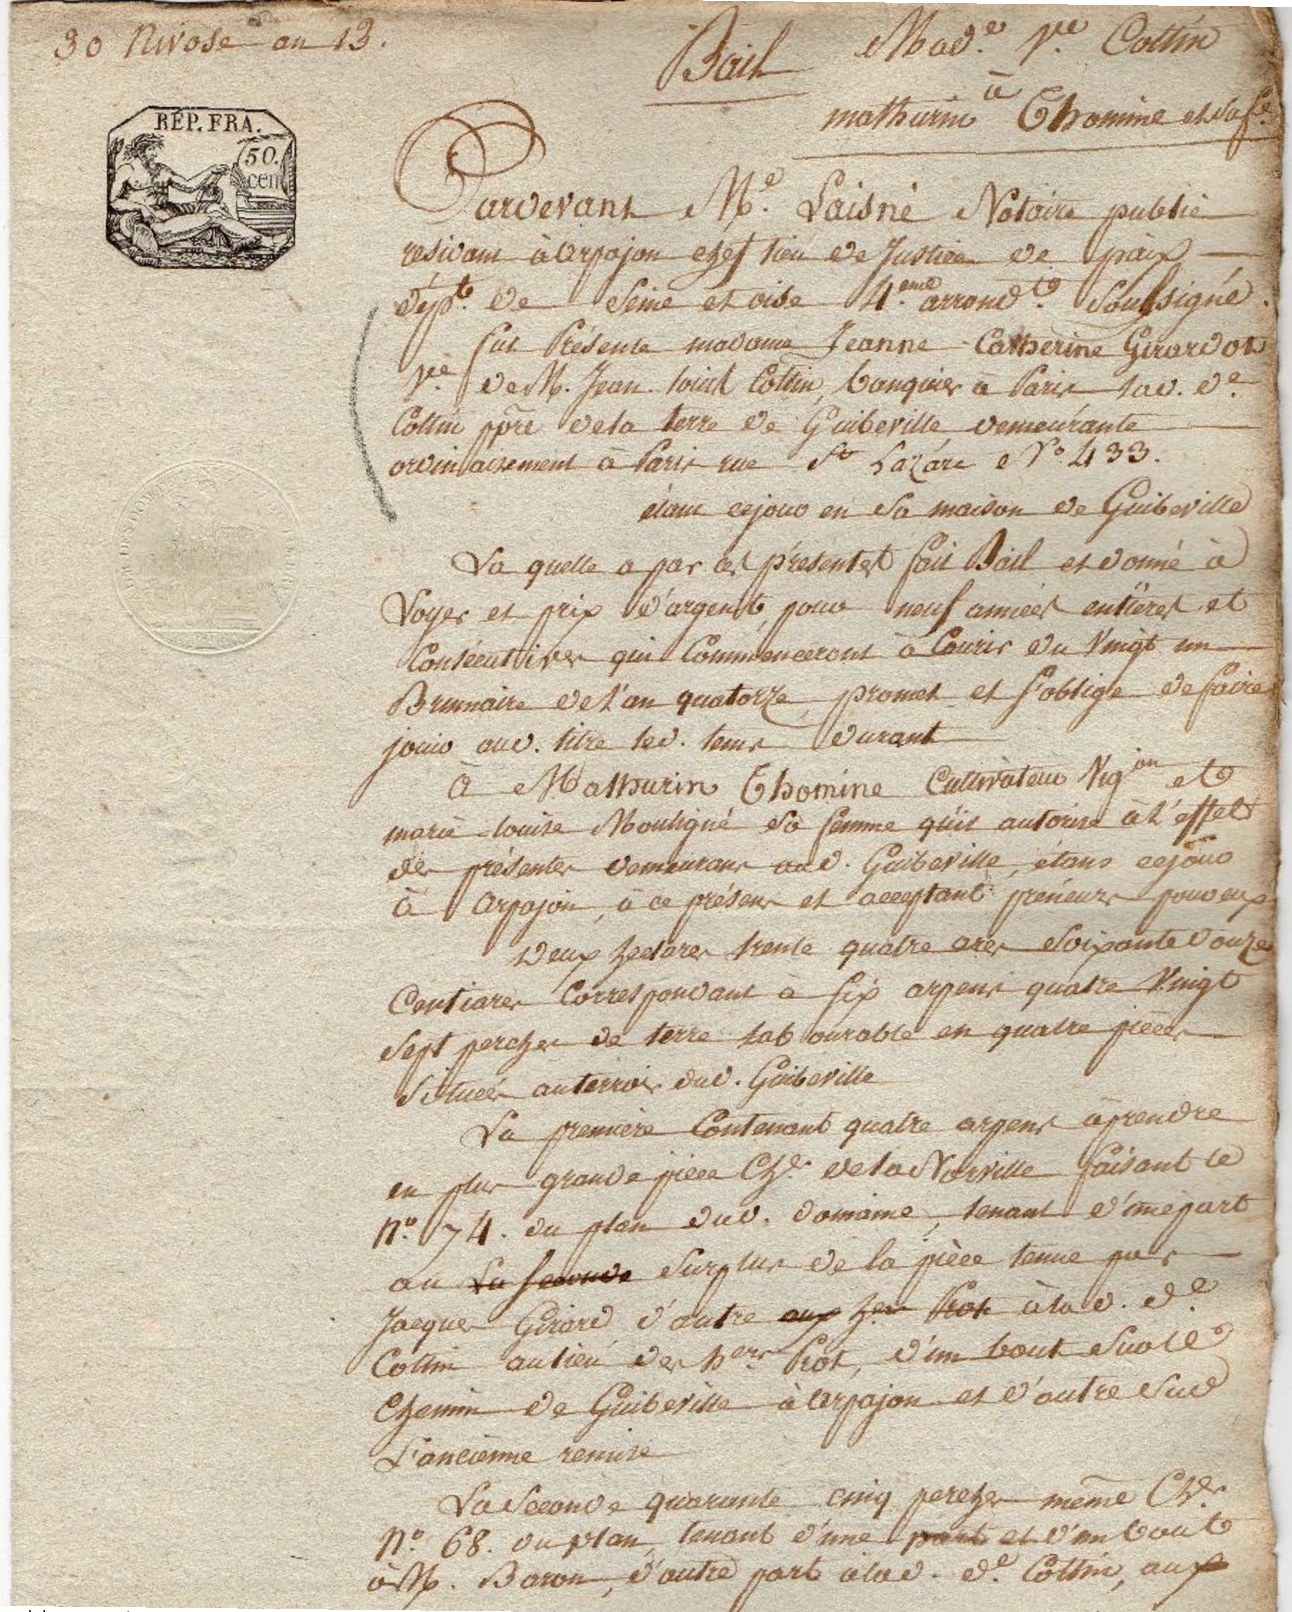 30 Nivose an 13.
Bail
Mad.e V.ve Cottin
à
mathurin Thomine et sa f.e
REP. FRA.
50.
cen
Pardevant M.e Laisné Notaire public
residant à Arpajon chef lieu de Justice de paix
dép.t de Seine et oise 4.eme arrond.t Soussigné.
fut Présente madame Jeanne Catherine Girardot
V.ve de M. Jean Louis Cottin, banquier à Paris, lad. d.e
Cottin ppre dela terre de Guibeville demeurante
ordinairement à Paris rue St Lazare N.o 433.
étant cejour en Sa maison de Guibeville
La quelle a par ces présentes fait Bail et donné à
Loyer et prix d'argent, pour neuf années entières et
Consécutives qui Commenceront à Courir du Vingt un
Brumaire de l'an quatorze, promet et s'oblige de faire
jouir aud. titre led. tems durant
à Mathurin Thomine Cultivateur Vig.on et
marie Louise Moutigné sa femme qu'il autorise à l'effet
des présentes demeurans aud. Guibeville, étans cejour
à Arpajon, à ce présens et acceptant preneurs pour eux
Deux hectares trente quatre ares Soixante douze
Centiares Correspondant à six arpens quatre Vingt
Sept perches de terre labourable en quatre pièces
Situées au terroir dud. Guibeville
La première Contenant quatre arpens à prendre
en plus grande pièce Ch.er de la Norville faisant le
N.o 74. du plan dud. domaine, tenant d'une part
au La seconde Surplus de la pièce tenue par
Jacques Girard d'autre aux her Prot à lad. d.e
Cottin au lieu des h.ers Prot, d'un bout Sur le
Chemin de Guibeville à Arpajon et d'autre Sur
L'ancienne remise
La Seconde quarante cinq perches même Ch.er
N.o 68. du plan, tenant d'une part et d'un bout
à M. Baron, d'autre part à lad. d.e Cottin, aux